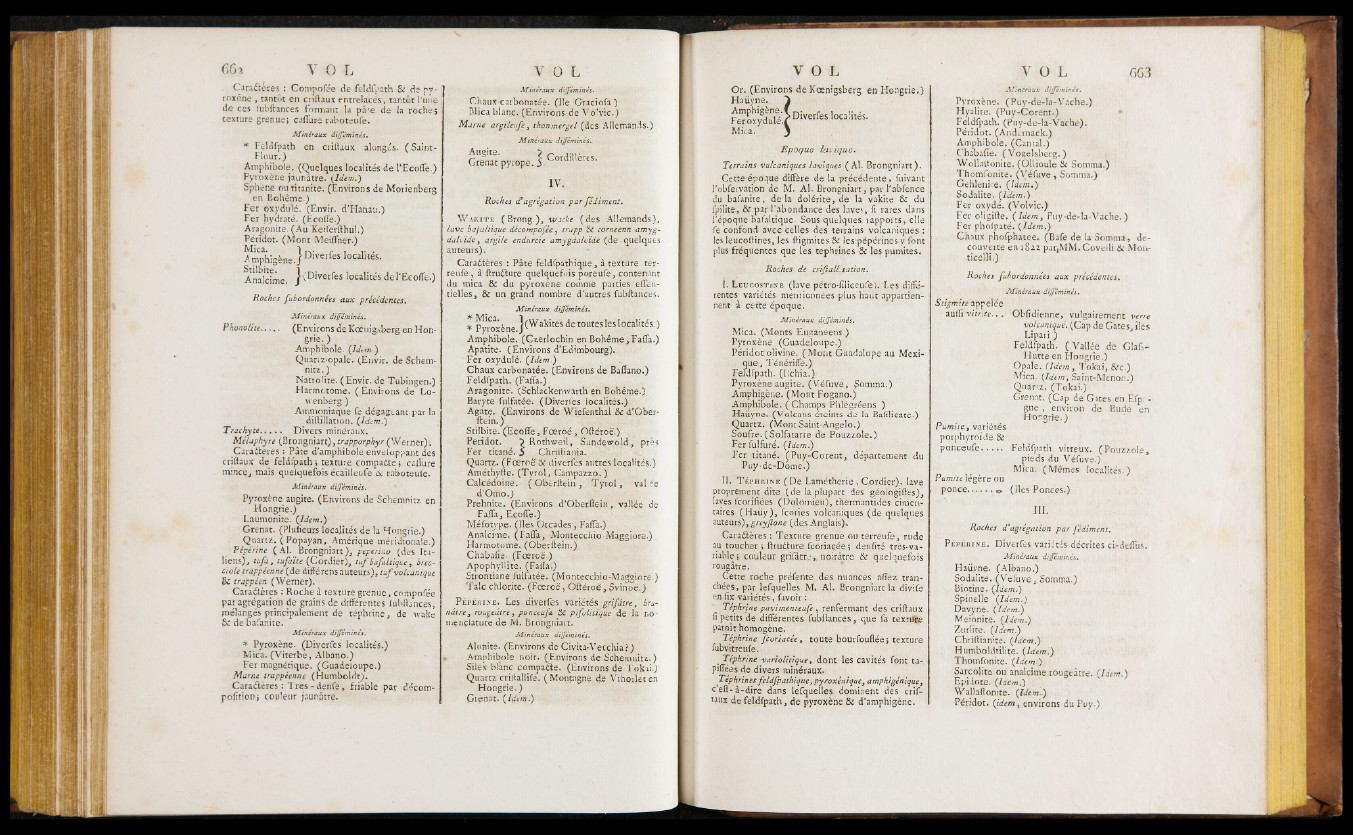 662 V O L
Caractères : Composée de feldspath & de py-
roxène, tantôt en cristaux entrelacés, tantôt l'une
de ces substances formant la pâte de la roche;
texture grenue; cassure raboteuse.
Minéraux disséminés.
* Feldspath en cristaux alongés. (Saint-
Flour.)
Amphibole. (Quelques localités de l'Ecosse.)
Pyroxène jaunâtre. (Idem.)
Sphène ou titanite. (Environs de Morienberg
en Bohême.)
Fer oxydulé. (Envir. d'Hanau.)
Fer hydraté. (Ecosse.)
Aragonite. (Au Keisersthul.)
Péridot. (Mont Meissner.)
Mica.
Amphigène. } Diverses localités.
Stilbite.
Analcime. } (Diverses localités de l'Ecosse.)
Roches subordonnées aux précédentes.
Minéraux disséminés.
Phonolite..... (Environs de Kœnigsberg en Hon-
grie.)
Amphibole. (Idem.)
Quartz-opale. (Envir. de Schem-
nitz.)
Natrolite. (Envir. de Tubingen.)
Harmotome. (Environs de Lo-
wenberg.)
Ammoniaque se dégageant par la
distillation. (Idem.)
Trachyte..... Divers minéraux.
Mélaphyre (Brongniart), trapporphyr (Werner).
Caractères : Pâte d'amphibole enveloppant des
cristaux de feldspath; texture compacte; cassure
mince, mais quelquefois écailleuse & raboteuse.
Minéraux disséminés.
Pyroxène augite. (Environs de Schemnitz en
Hongrie.)
Laumonite. (Idem.)
Grenat. (Plusieurs localités de la Hongrie.)
Quartz. (Popayan, Amérique méridionale.)
Pépérine (Al. Brongniart), peperino (des Ita-
liens), tufa, tufaïte (Cordier), tuf basaltique, brec-
ciole trappéenne (de différens auteurs), tuf volcanique
& trappéen (Werner).
Caractères : Roche à texture grenue, composée
par agrégation de grains de différentes substances,
mélanges principalement de téphrine, de wake
& de basanite.
Minéraux disséminés.
* Pyroxène. (Diverses localités.)
Mica. (Viterbe, Albano.)
Fer magnétique. (Guadeloupe.)
Marne trappéenne (Humboldt).
Caractères : Très-dense, friable par décom-
position; couleur jaunâtre.
V O L
Minéraux disséminés.
Chaux carbonatée. (Ile Graciosa.)
Mica blanc. (Environs de Volvic.)
Marne argileuse, thonmergel (des Allemands.)
Minéraux disséminés.
Augite.
Grenat pyrope. } Cordillères.
IV.
Roches d'agrégation par sédiment.
WAKITE (Brong.), wacke (des Allemands),
lave basaltique décomposée, trapp & corneenn amyg-
daloïde, argile endurcie amygdaloïde (de quelques
auteurs).
Caractères : Pâte feldspathique, à texture ter-
reuse, à structure quelquefois poreuse, contenant
du mica & du pyroxène comme parties essen-
tielles, & un grand nombre d'autres substances.
Minéraux disséminés.
* Mica.
* Pyroxène. } (Wakites de toutes les localités.)
Amphibole. (Czerlochin en Bohême, Fassa.)
Apatite. (Environs d'Edimbourg).
Fer oxydulé. (Idem.)
Chaux carbonatée. (Environs de Bassano.)
Feldspath. (Fassa.)
Aragonite. (Schlackenwarth en Bohême.)
Baryte sulfatée. (Diverses localités.)
Agate. (Environs de Wiesenthal & d'Ober-
stein.)
Stilbite. (Ecosse, Fœroé, Ostéroë.)
Péridot. } Rothweil, Sundewold, près
Fer titané. } Christiania.
Quartz. (Fœroë & diverses autres localités.)
Améthyste. (Tyrol, Campazzo.)
Calcédoine. (Oberstein, Tyrol, vallée
d'Omo.)
Prehnite. (Environs d'Oberstein, vallée de
Fassa, Ecosse.)
Mésotype. (Iles Orcades, Fassa.)
Analcime. (Fassa, Montecchio-Maggiore.)
Harmotome. (Oberstein.)
Chabasie. (Fœroë.)
Apophyllite. (Fassa.)
Strontiane sulfatée. (Montecchio-Maggiore.)
Talc chlorite. (Fœroë, Ostéroë, Svinoë.)
PÉPÉRINE. Les diverses variétés grisâtre, bru-
nâtre, rougeâtre, ponceuse & pisolitique de la no-
menclature de M. Brongniart.
Minéraux disséminés.
Alunite. (Environs de Civita-Vecchia?)
Amphibole noir. (Environs de Schemnitz.)
Silex blanc compacte. (Environs de Tokai.)
Quartz cristallisé. (Montagne de Vihorlet en
Hongrie.)
Grenat. (Idem.)
V O L
Or. (Environs de Kœnigsberg en Hongrie.)
Haüyne.
Amphigène.
Fer oxydulé. } Diverses localités.
Mica.
Epoque lavique.
Terrains vulcaniques laviques (Al. Brongniart).
Cette époque diffère de la précédente, suivant
l'observation de M. Al. Brongniart, par l'absence
du basanite, de la dolérite, de la vakite & du
spilite, & par l'abondance des laves, si rares dans
l'époque basaltique. Sous quelques rapports, elle
se confond avec celles des terrains volcaniques :
les leucostines, les stigmites & les pépérines y sont
plus fréquentes que les tephrines & les pumites.
Roches de cristallisation.
I. LEUCOSTINE (lave pétro-siliceuse). Les diffé-
rentes variétés mentionnées plus haut appartien-
nent à cette époque.
Minéraux disséminés.
Mica. (Monts Euganéens.)
Pyroxène (Guadeloupe.)
Péridot olivine. (Mont Guadalupe au Mexi-
que, Ténériffe.)
Feldspath. (Ischia.)
Pyroxène augite. (Vésuve, Somma.)
Amphigène. (Mont Fogano.)
Amphibole. (Champs Phlégréens.)
Haüyne. (Volcans éteints de la Basilicate.)
Quartz. (Mont Saint-Angelo.)
Soufre. (Solfatarre de Pouzzole.)
Fer sulfuré. (Idem.)
Fer titané. (Puy-Corent, département du
Puy-de-Dôme.)
II. TÉPHRINE (De Lamétherie, Cordier), lave
proprement dite (de la plupart des géologistes),
laves scorifiées (Dolomieu), thermantides cimen-
taires (Hauy), scories volcaniques (de quelques
auteurs), greystone (des Anglais).
Caractères : Texture grenue ou terreuse, rude
au toucher; structure scoriacée; densité très-va-
riable; couleur grisâtre, noirâtre & quelquefois
rougâtre.
Cette roche présente des nuances assez tran-
chées, par lesquelles M. Al. Brongniart la divise
en six variétés, savoir :
Téphrine pavimenteuse, renfermant des cristaux
si petits de différentes substances, que sa texture
paroît homogène.
Téphrine scoriacée, toute boursouflée; texture
subvitreuse.
Téphrine variolitique, dont les cavités sont ta-
pissées de divers minéraux.
Téphrines feldspathique, pyroxénique, amphigénique,
c'est-à-dire dans lesquelles dominent des cris-
taux de feldspath, de pyroxène & d'amphigène.
V O L 663
Minéraux disséminés.
Pyroxène. (Puy-de-la-Vache.)
Hyalite. (Puy-Corent.)
Feldspath. (Puy-de-la-Vache).
Péridot. (Andernach.)
Amphibole. (Cantal.)
Chabasie. (Vogelsberg.)
Wollastonite. (Ollioule & Somma.)
Thomsonite. (Vésuve, Somma.)
Gehlenite. (Idem.)
Sodalite. (Idem.)
Fer oxydé. (Volvic.)
Fer oligiste. (Idem, Puy-de-la-Vache.)
Fer phospaté. (Idem.)
Chaux phosphatée. (Base de la Somma, dé-
couverte en 1822 par MM. Covelli & Mon-
ticelli.)
Roches subordonnées aux précédentes.
Minéraux disséminés.
Stigmite appelée
aussi vitrite... Obsidienne, vulgairement verre
volcanique. (Cap de Gates, îles
Lipari.)
Feldspath. (Vallée de Glass-
Hutte en Hongrie.)
Opale. (Idem, Tokai, &c.)
Mica. (Idem, Saint-Menon.)
Quartz. (Tokai.)
Grenat. (Cap de Gates en Espa-
gne, environ de Bude en
Hongrie.)
Pumite, variétés
porphyroïde &
ponceuse..... Feldspath vitreux. (Pouzzole,
pieds du Vésuve.)
Mica. (Mêmes localités.)
Pumite légère ou
ponce...... (Iles Ponces.)
III.
Roches d'agrégation par sédiment.
PÉPÉRINE. Diverses variétés décrites ci-dessus.
Minéraux disséminés.
Haüyne. (Albano.)
Sodalite. (Vésuve, Somma.)
Biotine. (Idem.)
Spinelle. (Idem.)
Davyne. (Idem.)
Meionite. (Idem.)
Zurlite. (Idem.)
Christianite. (Idem.)
Humboldtilite. (Idem.)
Thomsonite. (Idem.)
Sarcolite ou analcime rougeâtre. (Idem.)
Epidote. (Idem.)
Wallastonite. (Idem.)
Péridot. (idem, environs du Puy.)